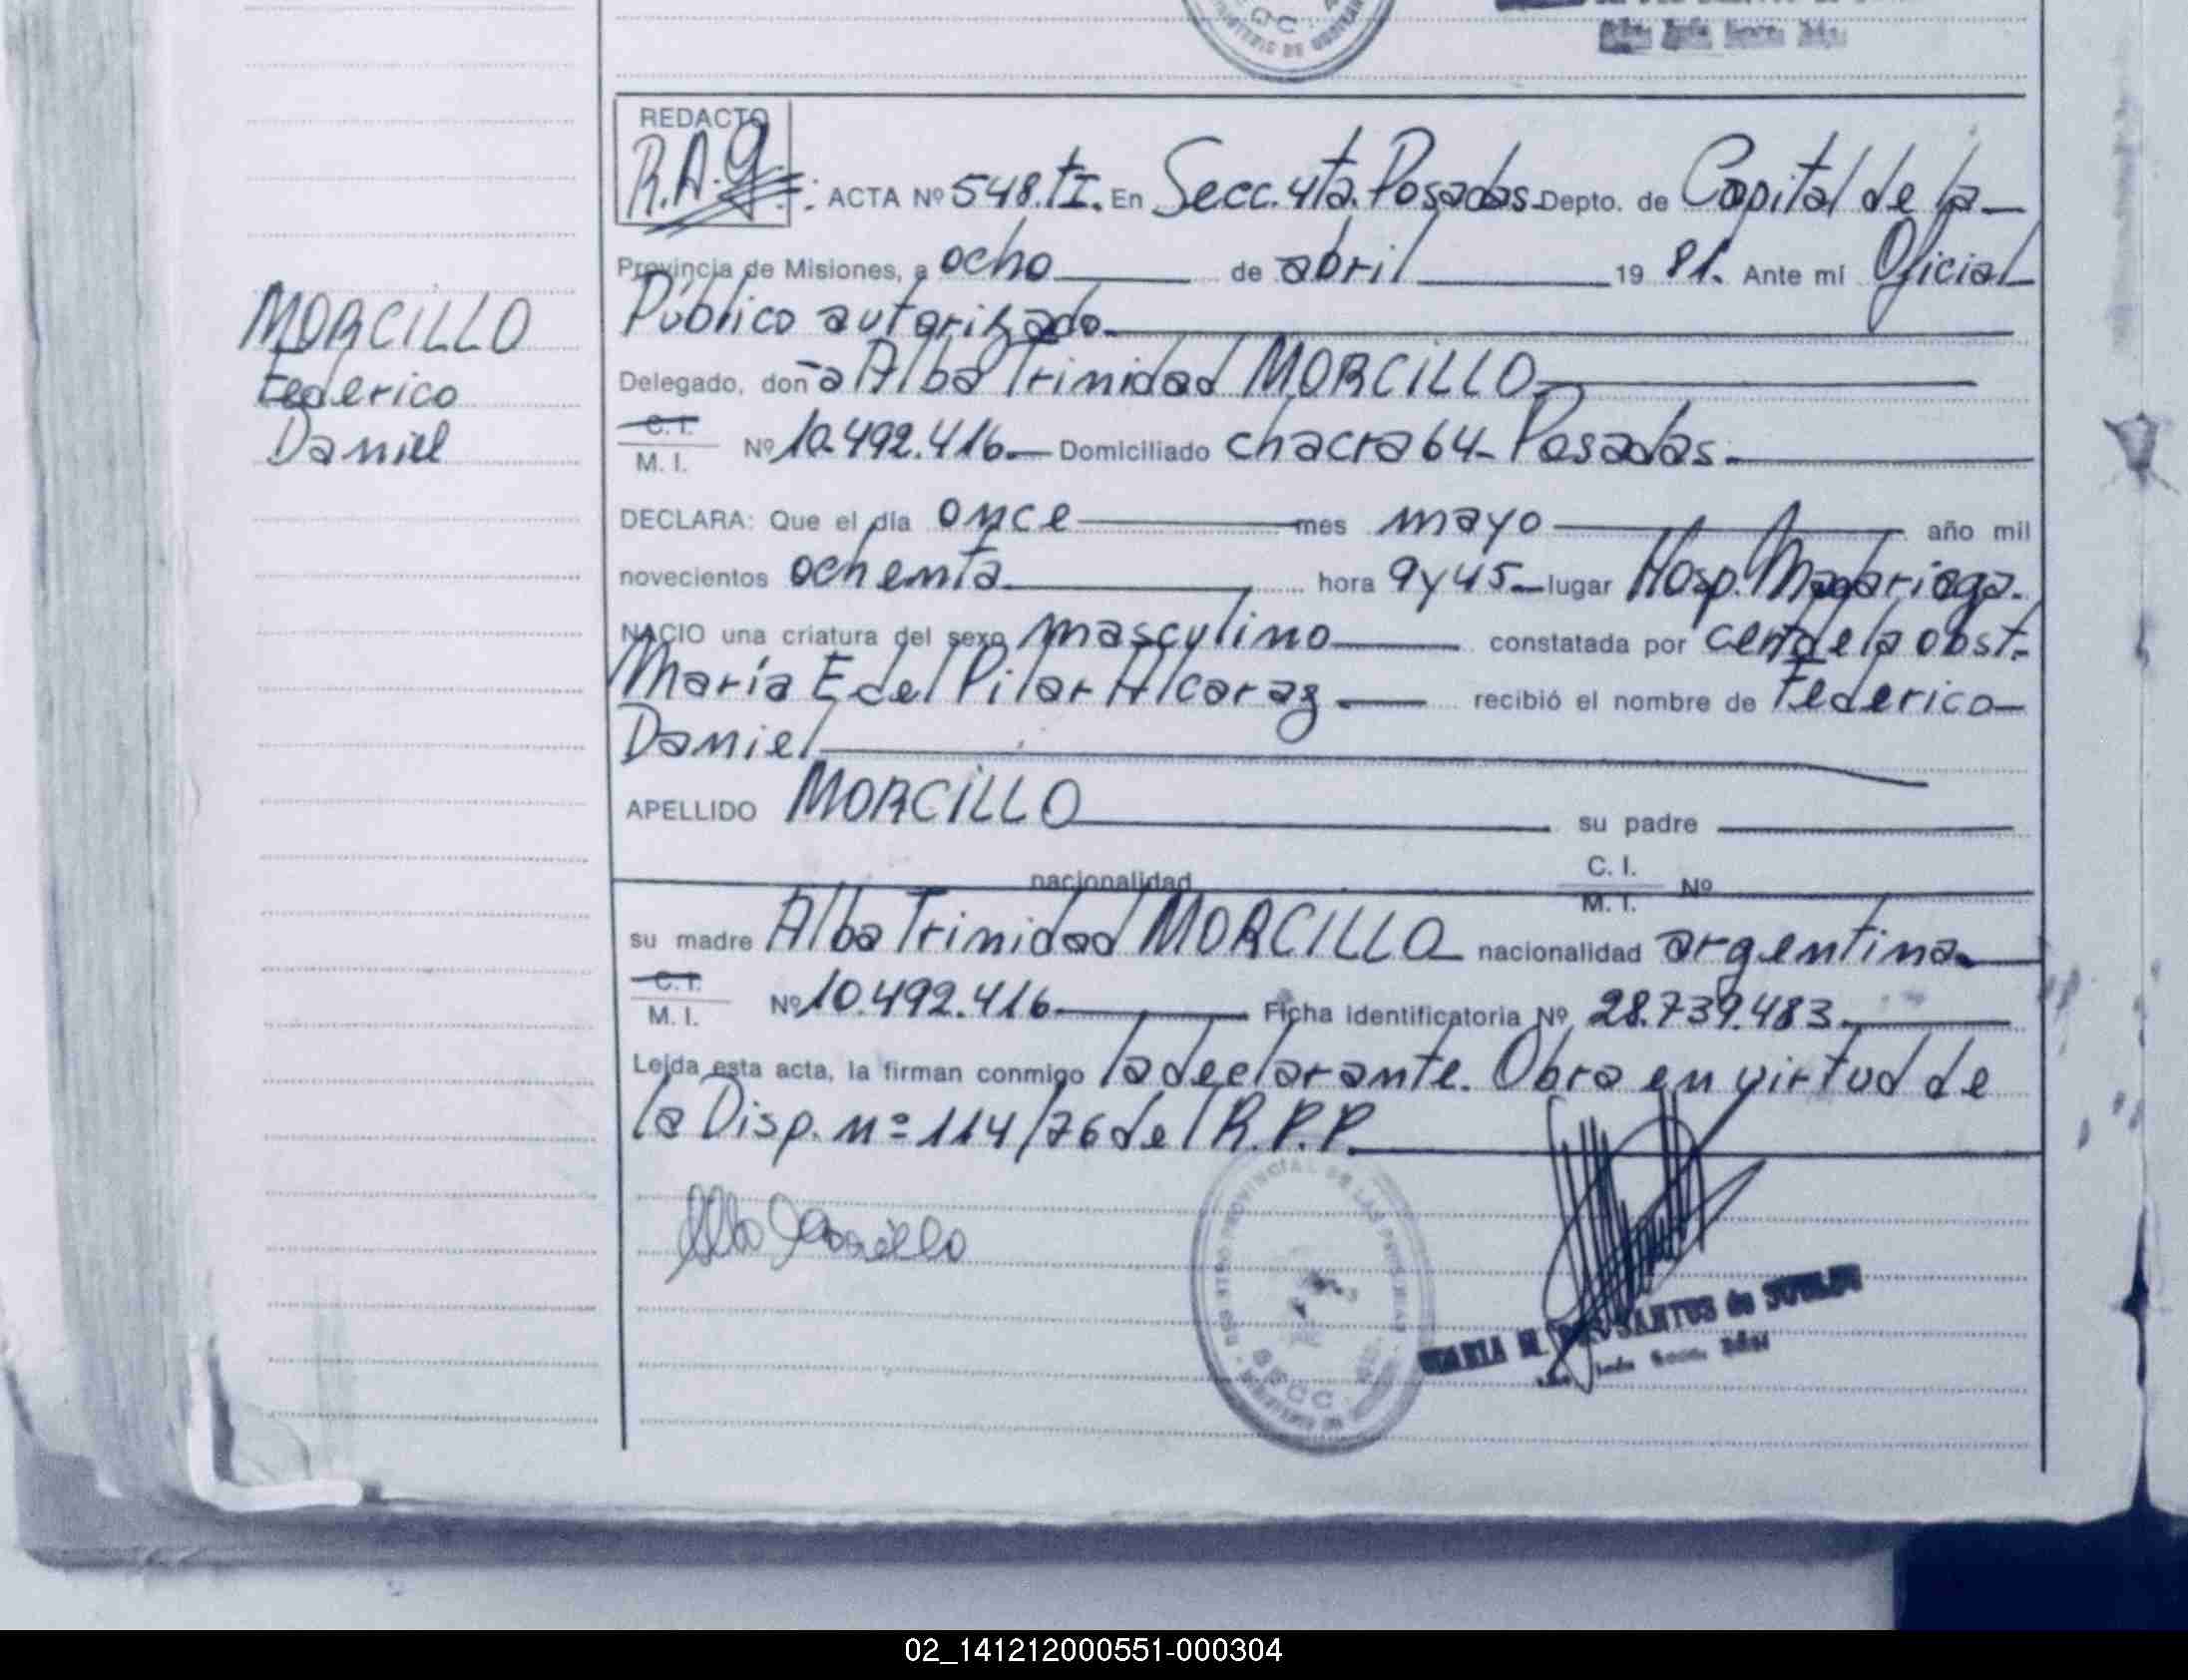 REDACTO
R.A.G
ACTA Nº 548.tI. En Secc. 4ta. Posadas Depto. de Capital de la
Provincia de Misiones, a ocho de abril 19 81. Ante mí Oficial
Público autorizado.
Delegado, doña Alba Trinidad MORCILLO
C. I.
M. I. Nº 10.492.416 Domiciliado chacra 64 - Posadas.
DECLARA: Que el día once mes mayo año mil
novecientos ochenta hora 9 y 45 lugar Hosp. Madariaga.
NACIO una criatura del sexo masculino constatada por cert. de la obst.
María E del Pilar Alcaraz recibió el nombre de Federico
Daniel
APELLIDO MORCILLO su padre
nacionalidad C. I. M. I. Nº
su madre Alba Trinidad MORCILLO nacionalidad argentina
C. I.
M. I. Nº 10.492.416 Ficha Identificatoria Nº 28.739.483
Leída esta acta, la firman conmigo la declarante. Obra en virtud de
la Disp. nº 114/76 del R.P.P.
MORCILLO
Federico
Daniel
REGISTRO PROVINCIAL DE LAS PERSONAS
SECC.
MARIA SANTOS de
02_141212000551-000304